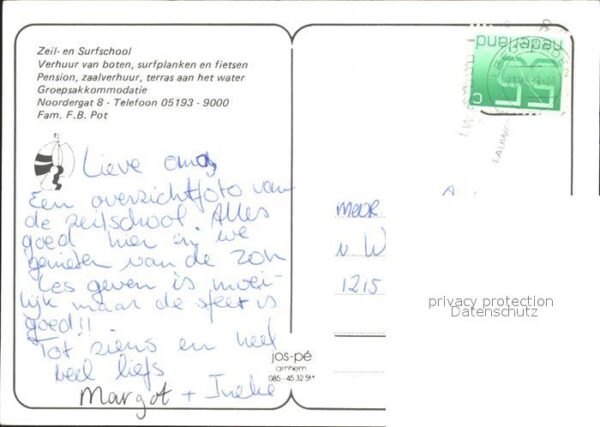 Zeil- en Surfschool
Verhuur van boten, surfplanken en fietsen
Pension, zaalverhuur, terras aan het water
Groepsakkommodatie
Noordergat 8 - Telefoon 05193 - 9000
Fam. F.B. Pot
Lieve oma,
Een overzichtfoto van
de zeilschool. Alles
goed hier in, we
genieten van de zon
Les geven is moei-
lijk maar de sfeer is
goed!!
Tot ziens en heel
veel liefs
Margot + Ineke
jos-pé
arnhem
085-45 32 51*
nederland
55 c
v. W
1215
privacy protection
Datenschutz